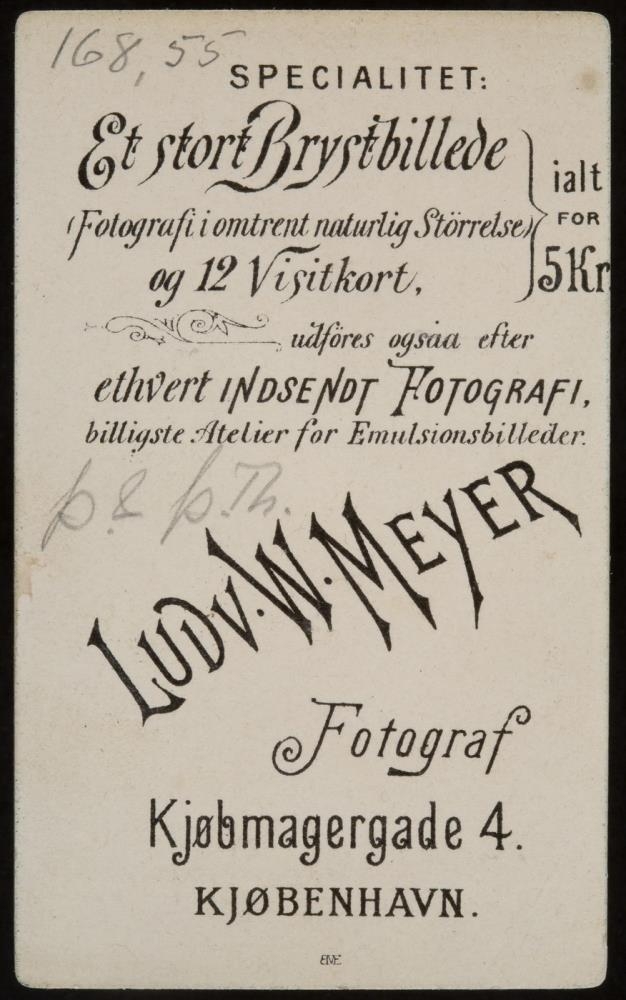 168,55
SPECIALITET:
Et stort Brystbillede
(Fotografi i omtrent naturlig Störrelse)
og 12 Visitkort,
ialt
FOR
5 Kr
udföres ogsaa efter
ethvert INDSENDT FOTOGRAFI,
billigste Atelier for Emulsionsbilleder.
p.& p.Th.
LUDV. W. MEYER
Fotograf
Kjøbmagergade 4.
KJØBENHAVN.